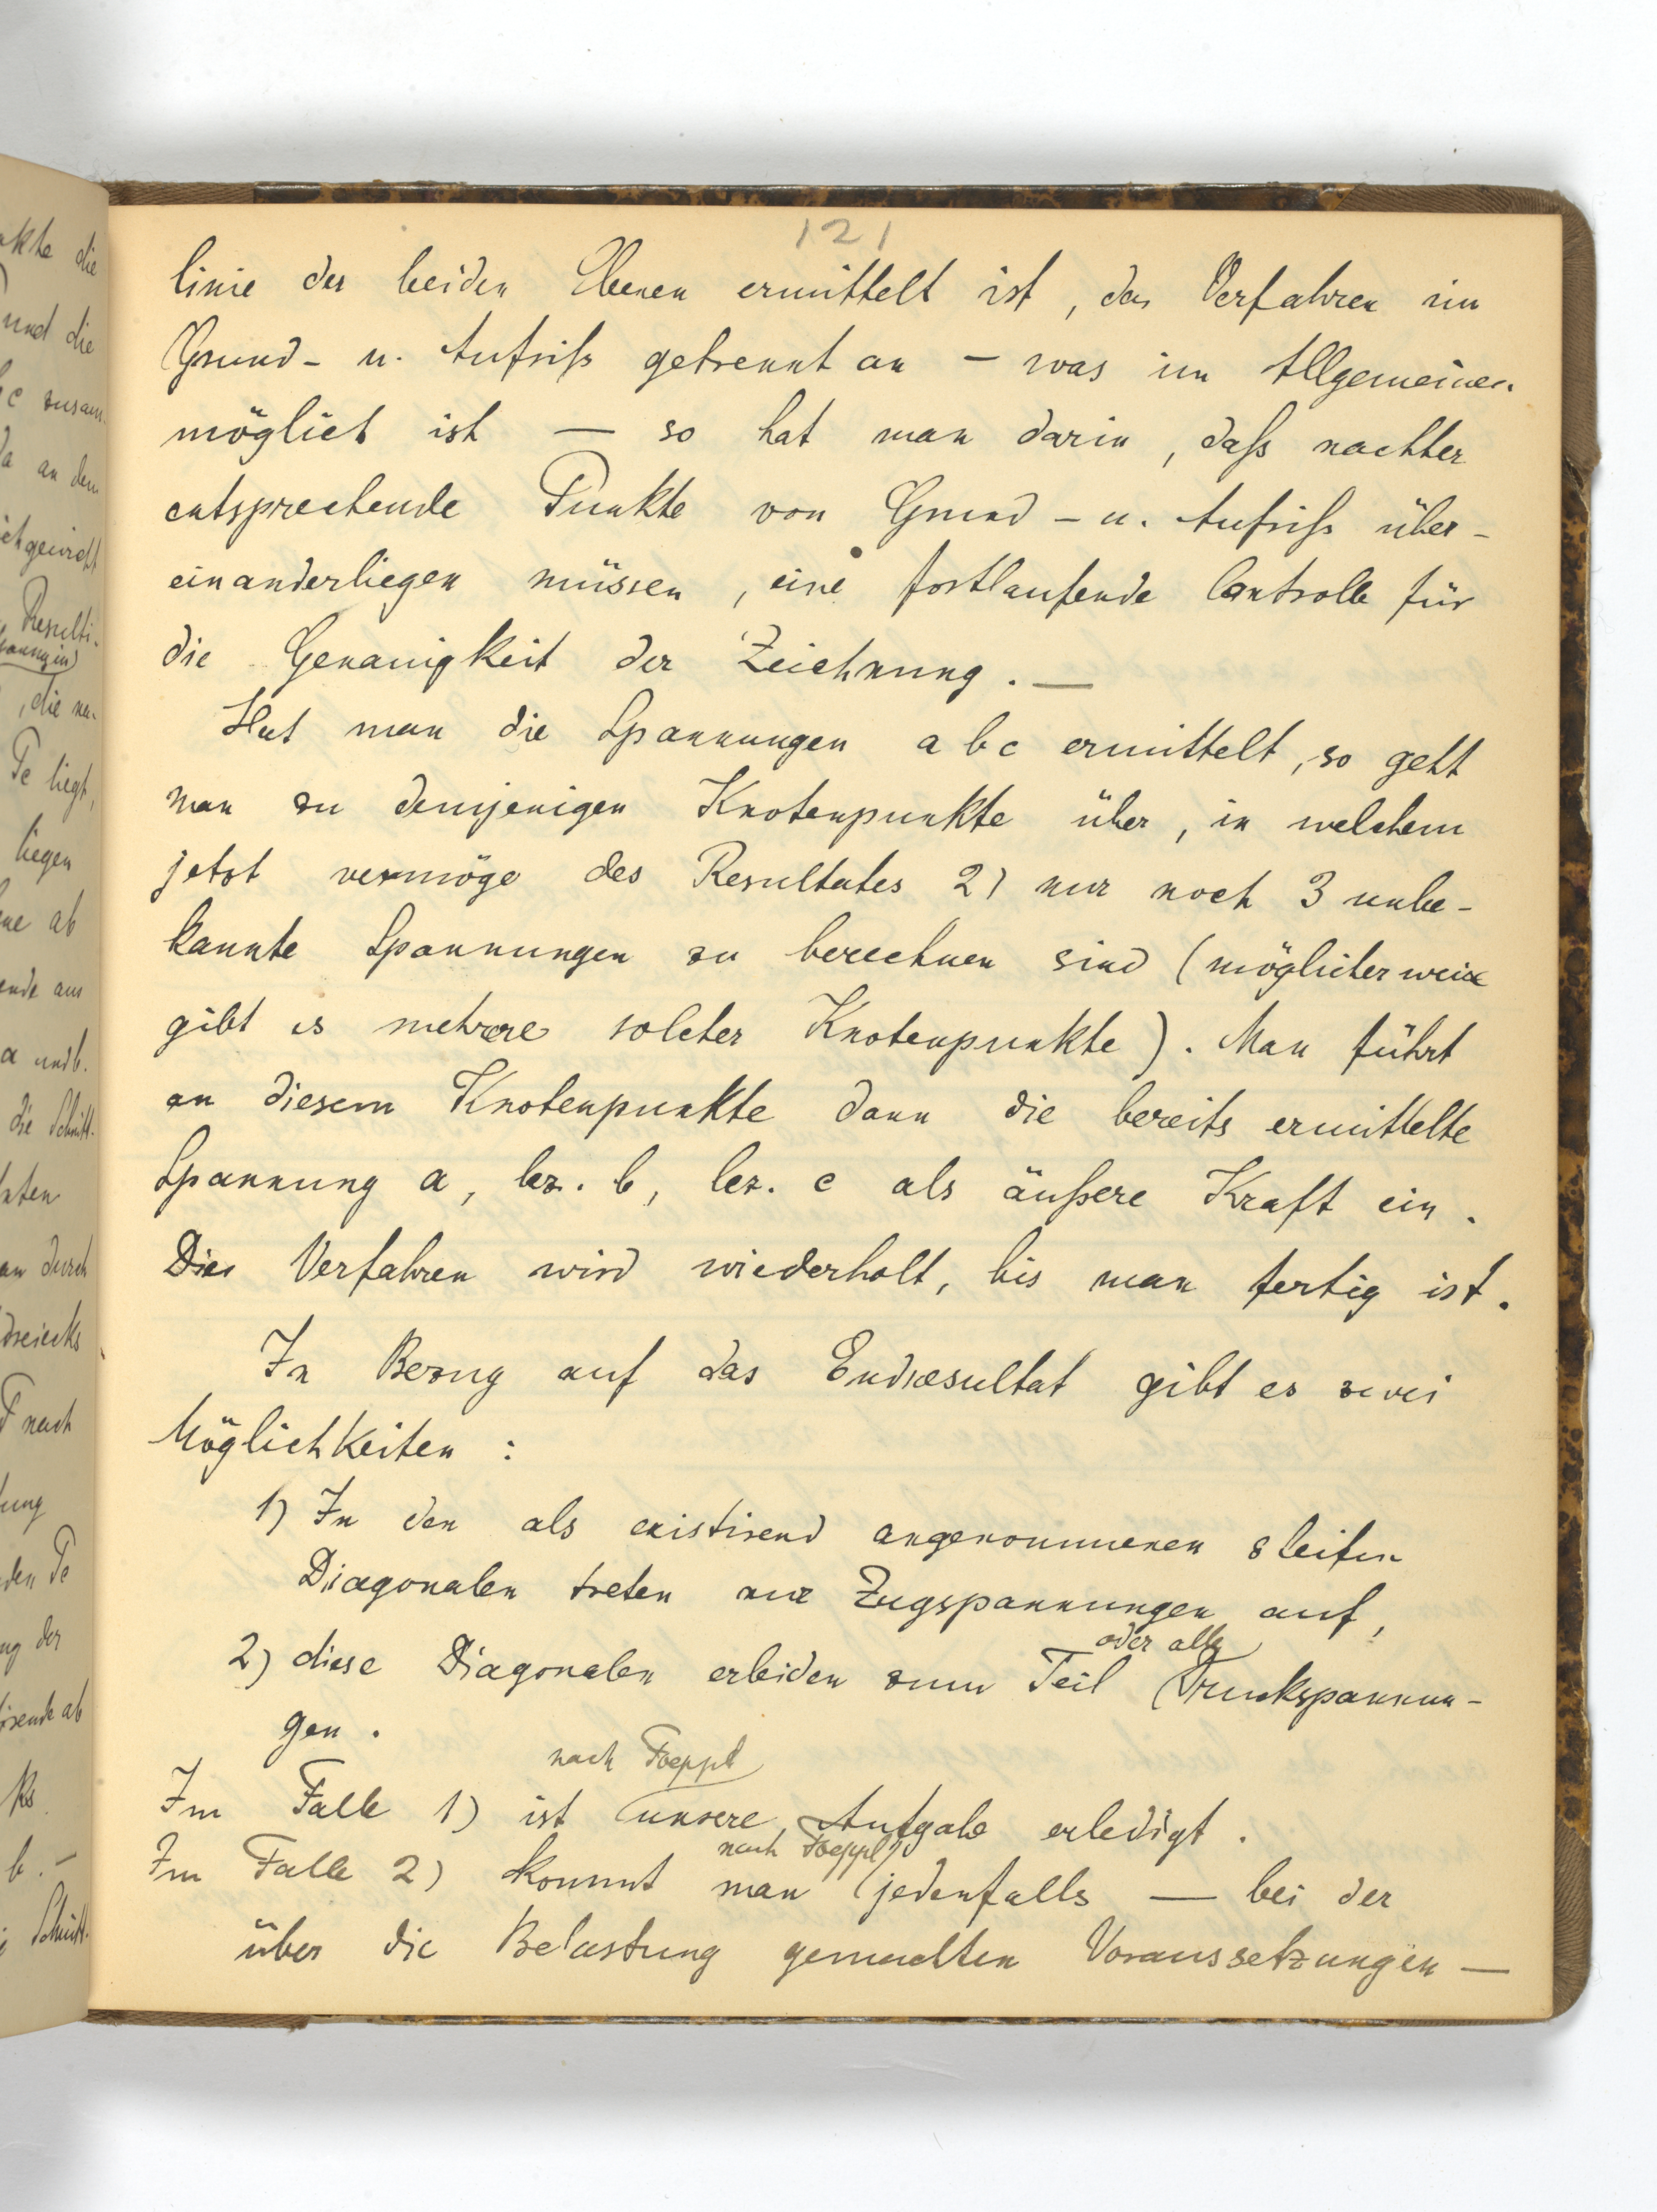 kte die
und die
c zusam-
a an dem
ichgewicht
Resulti-
, die na-
Te liegt,
liegen
ne ab
ende aus
a und b.
die Schnitt-
an durch
dreiecks
T nach
den Te
ng der
ks
b. –
Schnitt-
121
linie der beiden Ebenen ermittelt ist, das Verfahren im
Grund- u. Aufriß getrennt an – was im Allgemeinen
möglich ist — so hat man darin, daß nachher
entsprechende Punkte von Grund- u. Aufriß über-
einanderliegen müssen, eine fortlaufende Controlle für
die Genauigkeit der Zeichnung. —
Hat man die Spannungen a b c ermittelt, so geht
man zu demjenigen Knotenpunkte über, in welchem
jetzt vermöge des Resultates 2) nur noch 3 unbe-
kannte Spannungen zu berechnen sind (möglicherweise
gibt es mehrere solcher Knotenpunkte). Man führt
an diesem Knotenpunkte dann die bereits ermittelte
Spannung a, bez. b, bez. c als äußere Kraft ein.
Dies Verfahren wird wiederholt, bis man fertig ist.
In Bezug auf das Endresultat gibt es zwei
Möglichkeiten :
1) In den als existirend angenommenen steifen
Diagonalen treten nur Zugspannungen auf,
oder alle
2) diese Diagonalen erleiden zum Teil Druckspannun-
gen .
nach Foeppl
Im Falle 1) ist unsere Aufgabe erledigt .
nach Foeppl
Im Falle 2) kommt man jedenfalls — bei der
über die Belastung gemachten Voraussetzungen —